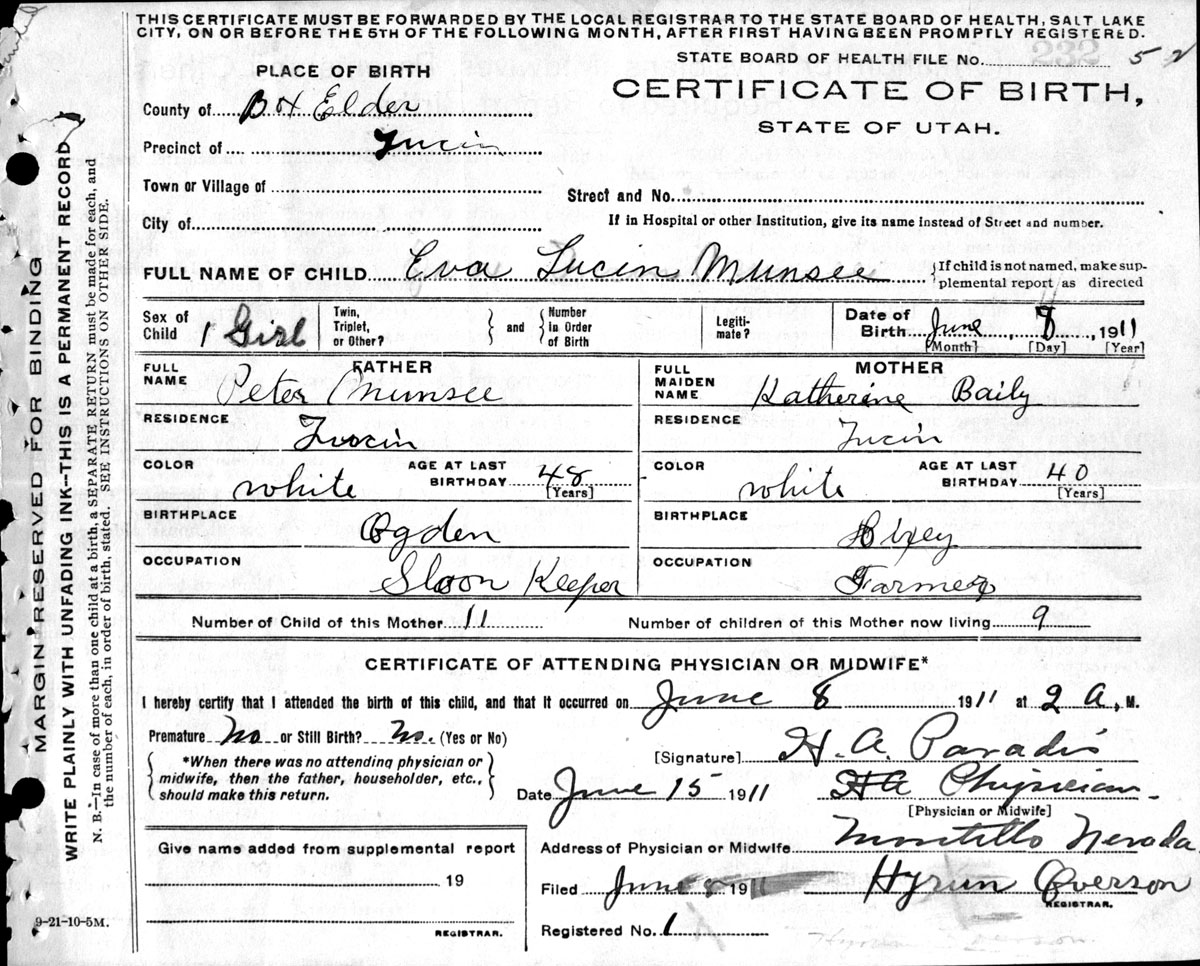 THIS CERTIFICATE MUST BE FORWARDED BY THE LOCAL REGISTRAR TO THE STATE BOARD OF HEALTH, SALT LAKE
CITY, ON OR BEFORE THE 5TH OF THE FOLLOWING MONTH, AFTER FIRST HAVING BEEN PROMPTLY REGISTERED.
STATE BOARD OF HEALTH FILE No. 232 5
PLACE OF BIRTH
CERTIFICATE OF BIRTH,
STATE OF UTAH.
County of Box Elder
Precinct of Lucin
Town or Village of
Street and No.
City of
If in Hospital or other Institution, give its name instead of Street and number.
FULL NAME OF CHILD Eva Lucin Munsee {If child is not named, make sup-
plemental report as directed
Sex of Child 1 Girl
Twin, Triplet, or Other? } and { Number in Order of Birth
Legiti-mate?
Date of Birth June, 8, 1911
[Month] [Day] [Year]
FATHER
FULL NAME Peter Munsee
RESIDENCE Lucin
COLOR white AGE AT LAST BIRTHDAY 48 [Years]
BIRTHPLACE Ogden
OCCUPATION Sloon Keeper
MOTHER
FULL MAIDEN NAME Katherine Baily
RESIDENCE Lucin
COLOR white AGE AT LAST BIRTHDAY 40 [Years]
BIRTHPLACE
OCCUPATION Farmer
Number of Child of this Mother 11 Number of children of this Mother now living 9
CERTIFICATE OF ATTENDING PHYSICIAN OR MIDWIFE*
I hereby certify that I attended the birth of this child, and that it occurred on June 8 1911 at 2 A, M.
Premature No or Still Birth? No. (Yes or No)
{ *When there was no attending physician or
midwife, then the father, householder, etc.,
should make this return. }
[Signature] H. A. Paradis
Date June 15 1911 HA Physician
[Physician or Midwife]
Give name added from supplemental report
19
REGISTRAR.
Address of Physician or Midwife Montello Nevada
Filed June 8 1911 Hyrum Overson
REGISTRAR.
Registered No. 1
9-21-10-5M.
MARGIN RESERVED FOR BINDING
WRITE PLAINLY WITH UNFADING INK--THIS IS A PERMANENT RECORD
N. B.--In case of more than one child at a birth, a SEPARATE RETURN must be made for each, and
the number of each, in order of birth, stated. SEE INSTRUCTIONS ON OTHER SIDE.